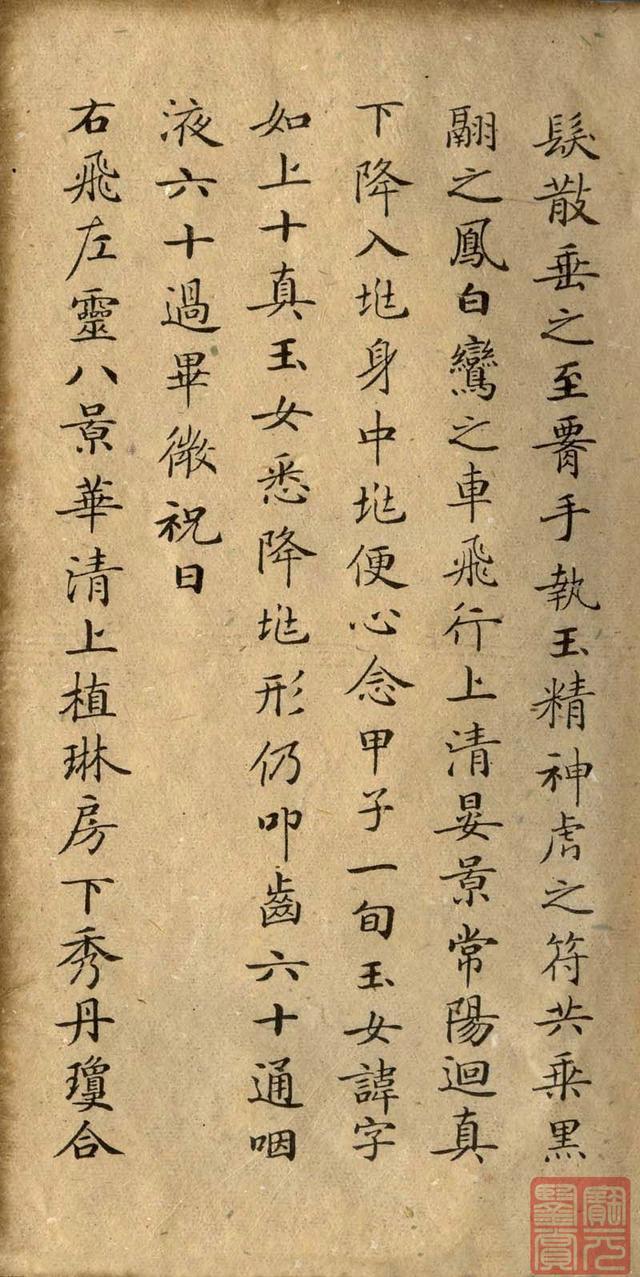 髮散垂之至𦝫手執玉精神虎之符共乗黒
翮之鳳白鸞之車飛行上清晏景常陽迴真
下降入兆身中兆便心念甲子一旬玉女諱字
如上十真玉女悉降兆形仍叩齒六十通咽
液六十過畢微祝曰
右飛左靈八景華清上植琳房下秀丹瓊合
寶元鑒賞